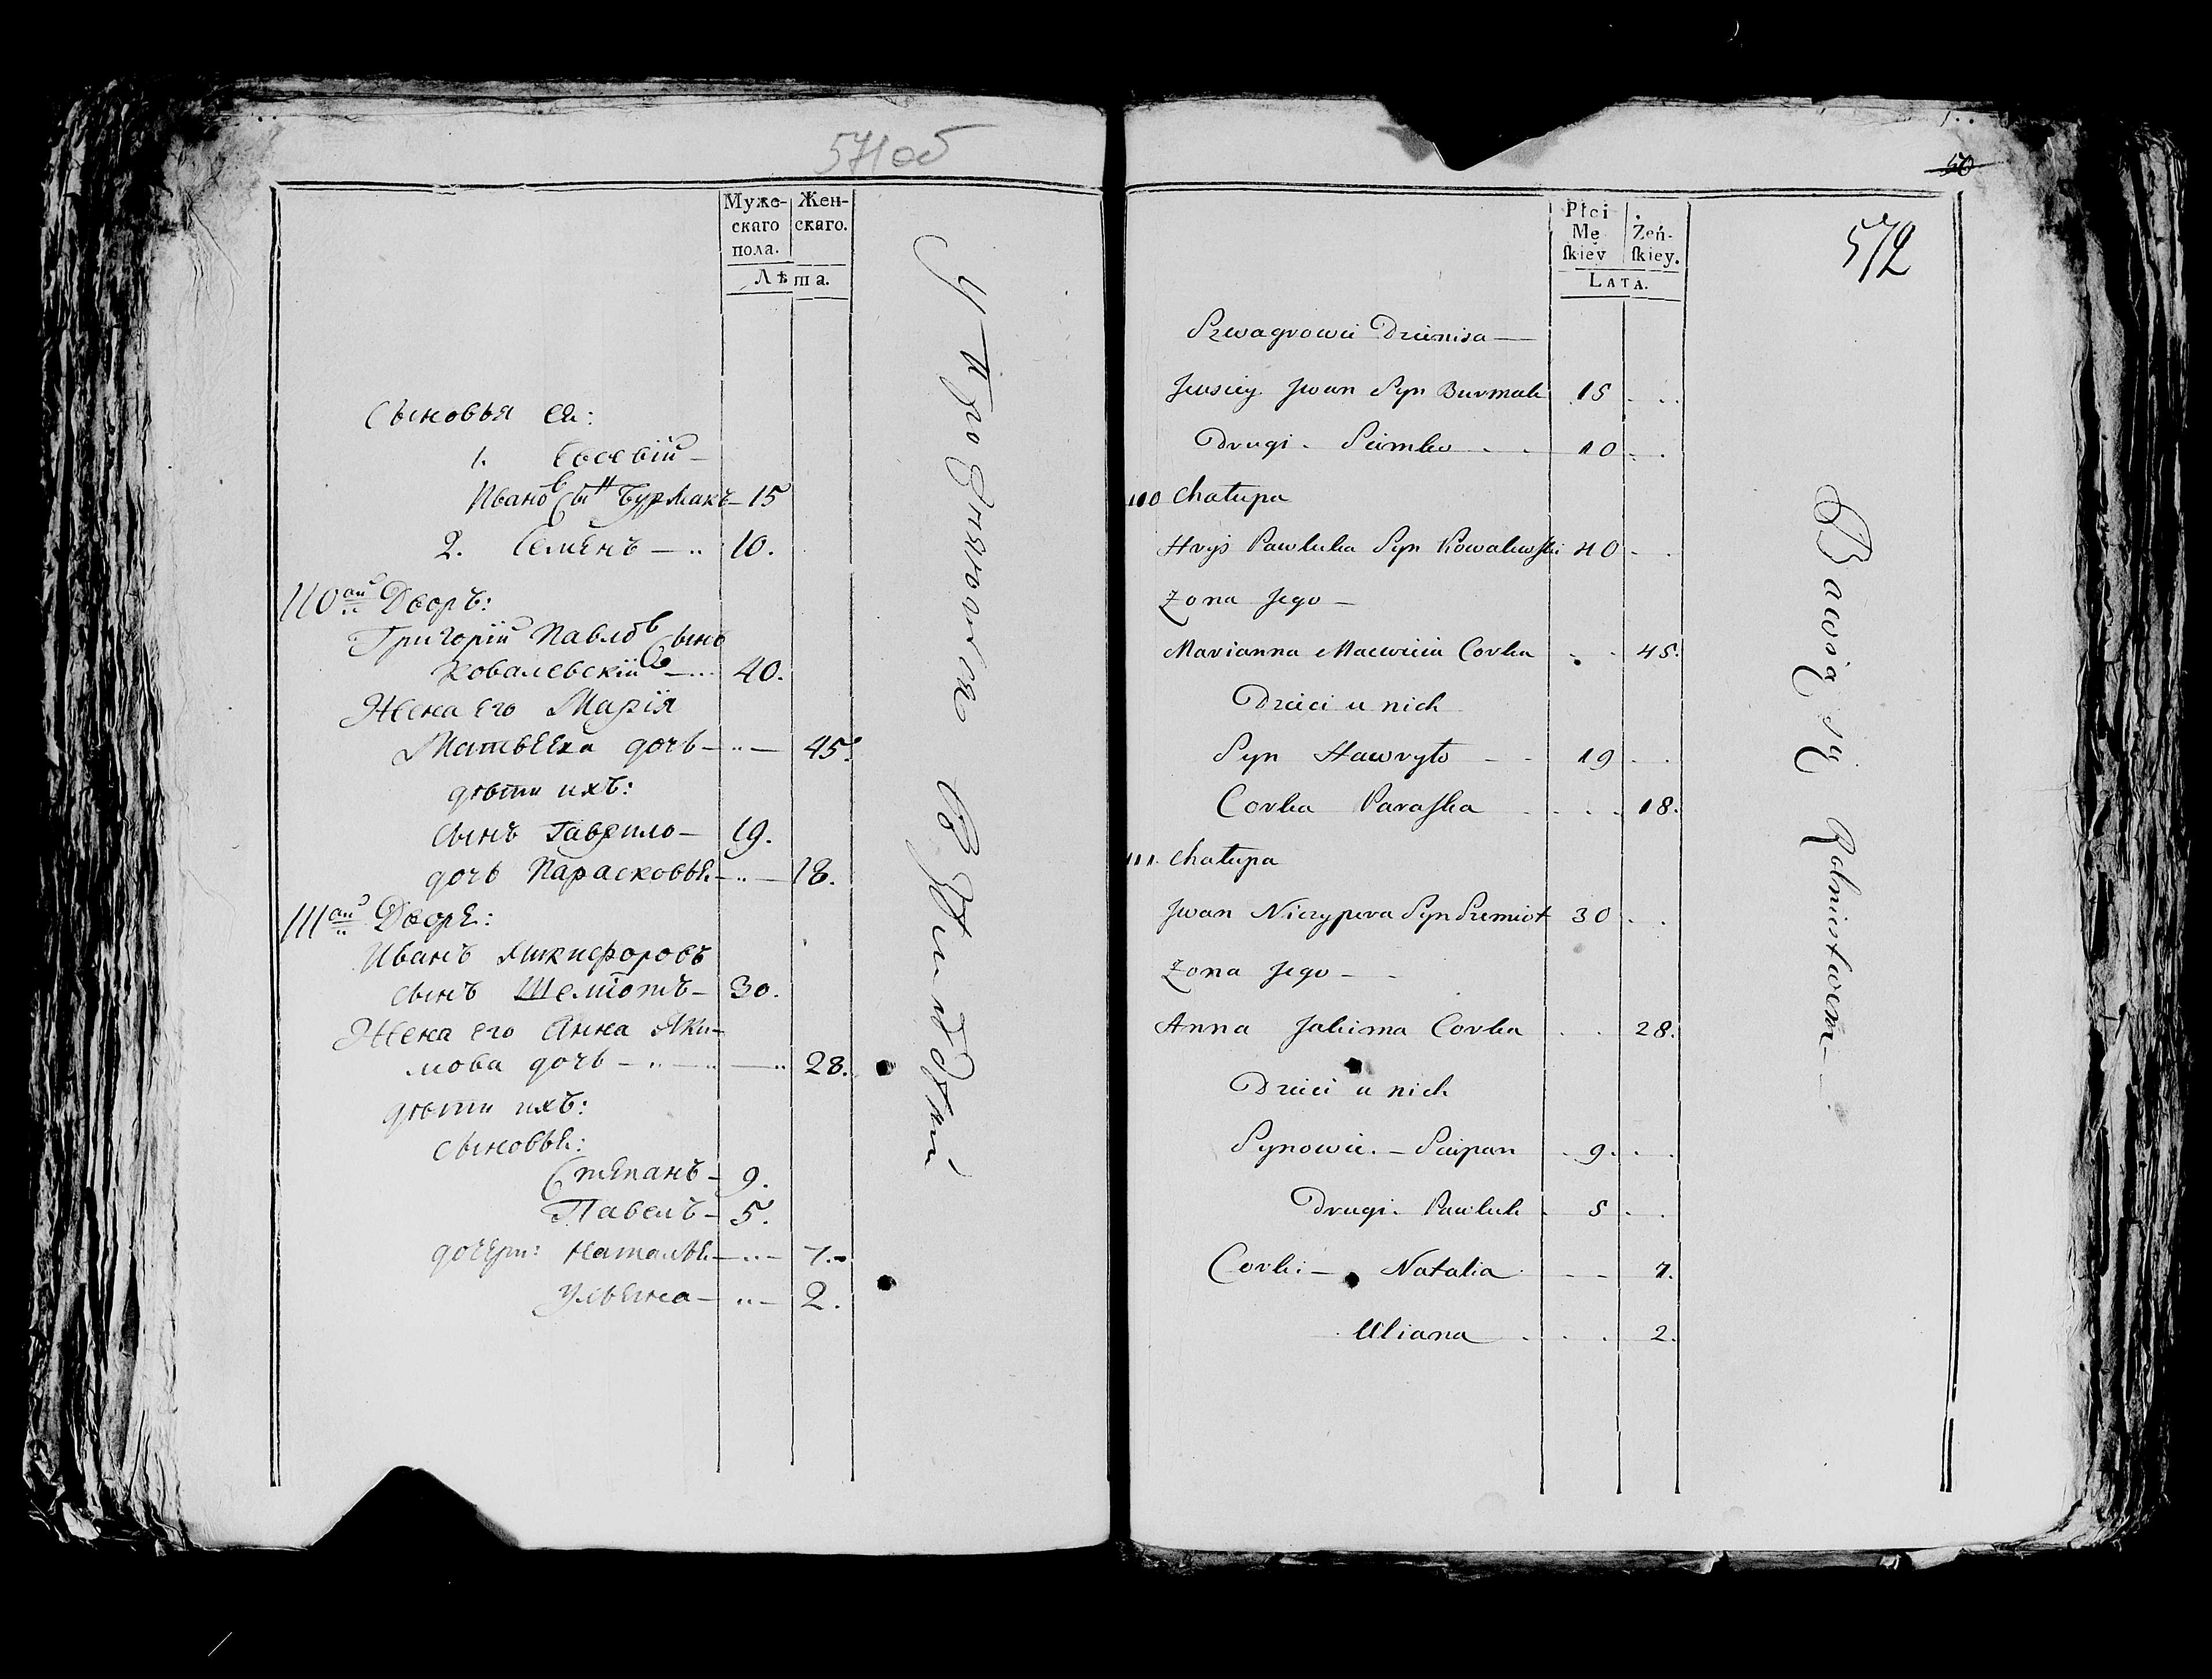 571об
Муже-
скаго
пола.
Жен-
скаго.
Лѣта.
Сыновья ея:
1. Евсевій —
Ивановъ Сынъ Бурмакъ — 15
2. Семенъ — 10.
110ый Дворъ:
Григорій Павловъ Сынъ
Ковалевскій — 40.
Жена его Марія
Матвеева дочь — 45.
дѣти ихъ:
Сынъ Гаврило — 19.
дочь Парасковья — 18.
111ый Дворъ:
Иванъ Никифоровъ
сынъ Шеметъ — 30.
Жена его Анна Яки-
мова дочь — 28.
дѣти ихъ:
сыновья:
Степанъ — 9.
Павелъ — 5.
дочери: Наталья — 7.
Ульяна — 2.
Упражняются В
50
572
Płci
Mę
skiey
Żeń-
skiey.
LATA.
Szwagrowie Dzienisa —
Jewsiey Jwan Syn Burmak 15
Drugi - Siemko 10
110 Chałupa
Hryś Pawluka Syn Kowalewski 40
Zona Jego —
Marianna Maciwieia Corka 45.
Dzieci u nich
Syn Hawryło 19
Corka Paraska 18.
111. Chałupa
Jwan Niczypora Syn Szemiot 30
Zona Jego —
Anna Jakima Corka 28.
Dzieci u nich
Synowie. — Sciepan 9.
Drugi - Pawluk 5
Corki — Natalia 7.
Uliana 2.
Bawią się Rolnictwem —